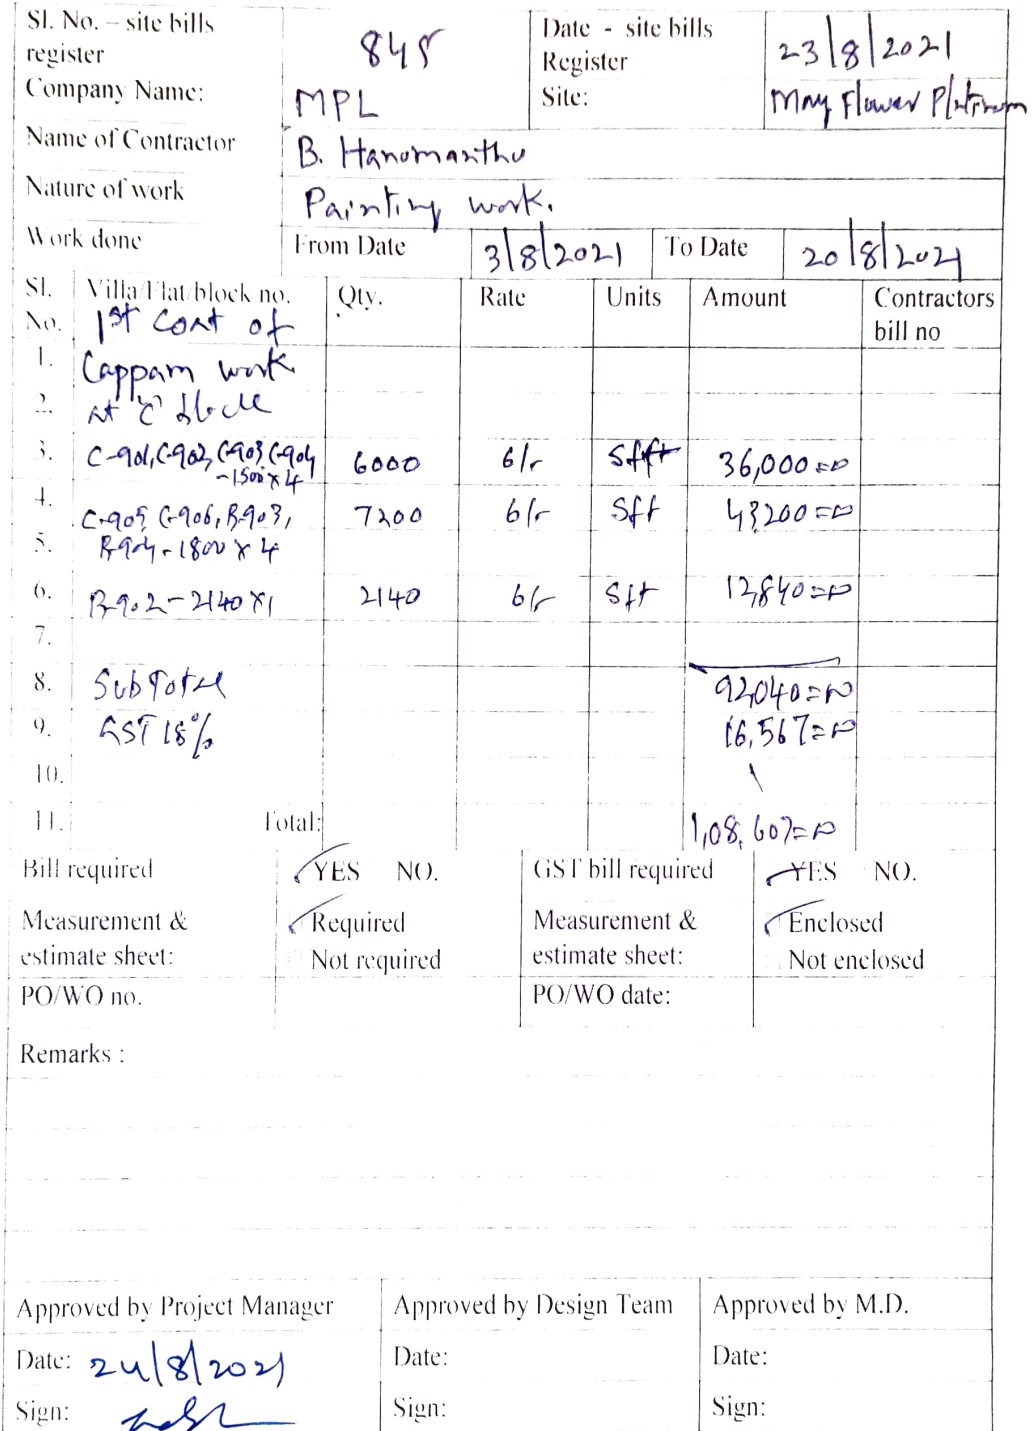 Sl. No. – site bills register 845 Date - site bills Register 23/8/2021
Company Name: MPL Site: May Flower Platinum
Name of Contractor B. Hanumanthu
Nature of work Painting work.
Work done From Date 3/8/2021 To Date 20/8/2021
Sl. No. Villa/Flat/block no. Qty. Rate Units Amount Contractors bill no
1st Coat of
1. Cappam work
2. at 'C' Block
3. C-901, C-902, C-903 C-904 6000 6/- Sft 36,000=00
-1500 x 4
4. C-905, C-906, B-903, 7200 6/- Sft 43,200=00
5. B-904-1800 x 4
6. B-902-2140 x 1 2140 6/- Sft 12,840=00
7.
8. Sub Total 92,040=00
9. GST 18% 16,567=00
10.
11. Total: 1,08,607=00
Bill required YES NO. GST bill required YES NO.
Measurement & estimate sheet: Required Measurement & estimate sheet: Enclosed
Not required Not enclosed
PO/WO no. PO/WO date:
Remarks :
Approved by Project Manager Approved by Design Team Approved by M.D.
Date: 24/8/2021 Date: Date:
Sign: Sign: Sign: